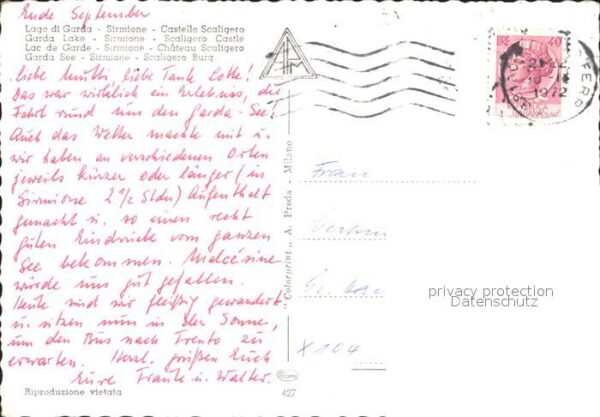 Ende September
Lago di Garda - Sirmione - Castello Scaligero
Garda Lake - Sirmione - Scaligero Castle
Lac de Garde - Sirmione - Château Scaligero
Garda See - Sirmione - Scaligero Burg
liebe Mutti, liebe Tante Lotte!
Das war wirklich ein Erlebniss, die
Fahrt rund um den Garda-See!
Auch das Wetter machte mit u.
wir haben an verschiedenen Orten
jeweils kürzer oder länger (in
Sirmione 2 1/2 Stdn) Aufenthalt
gemacht u. so einen recht
guten Eindruck vom ganzen
See bekommen. Malcésine
würde uns gut gefallen.
Heute sind wir fleißig gewandert
u. sitzen nun in der Sonne,
um den Bus nach Trento zu
erwarten. Herzl. grüßen Euch
Eure Traute u. Walter.
Riproduzione vietata
"Colorprint" A. Preda - Milano
427
40
1972
FERR
Frau
X 104
privacy protection
Datenschutz